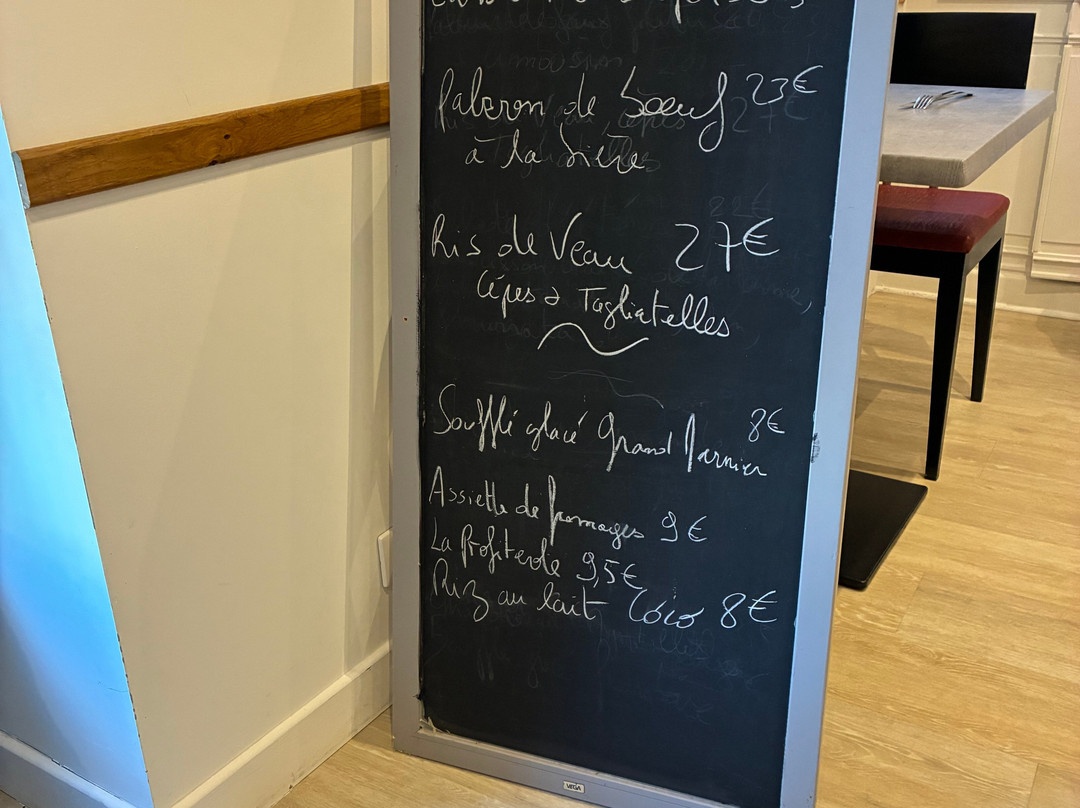 Paleron de boeuf 23€
à la bière
Ris de Veau 27€
Cépes & Tagliatelles
Soufflé glacé Grand Marnier 8€
Assiette de fromages 9€
La Profiterole 9,5€
Riz au lait Coco 8€
VEGA